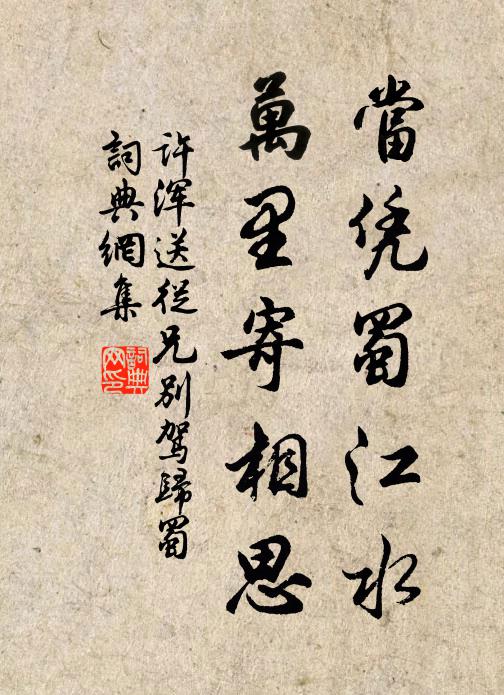 當凭蜀江水
萬里寄相思
许渾送從兄別駕歸蜀
詞典網集
詞典
网印